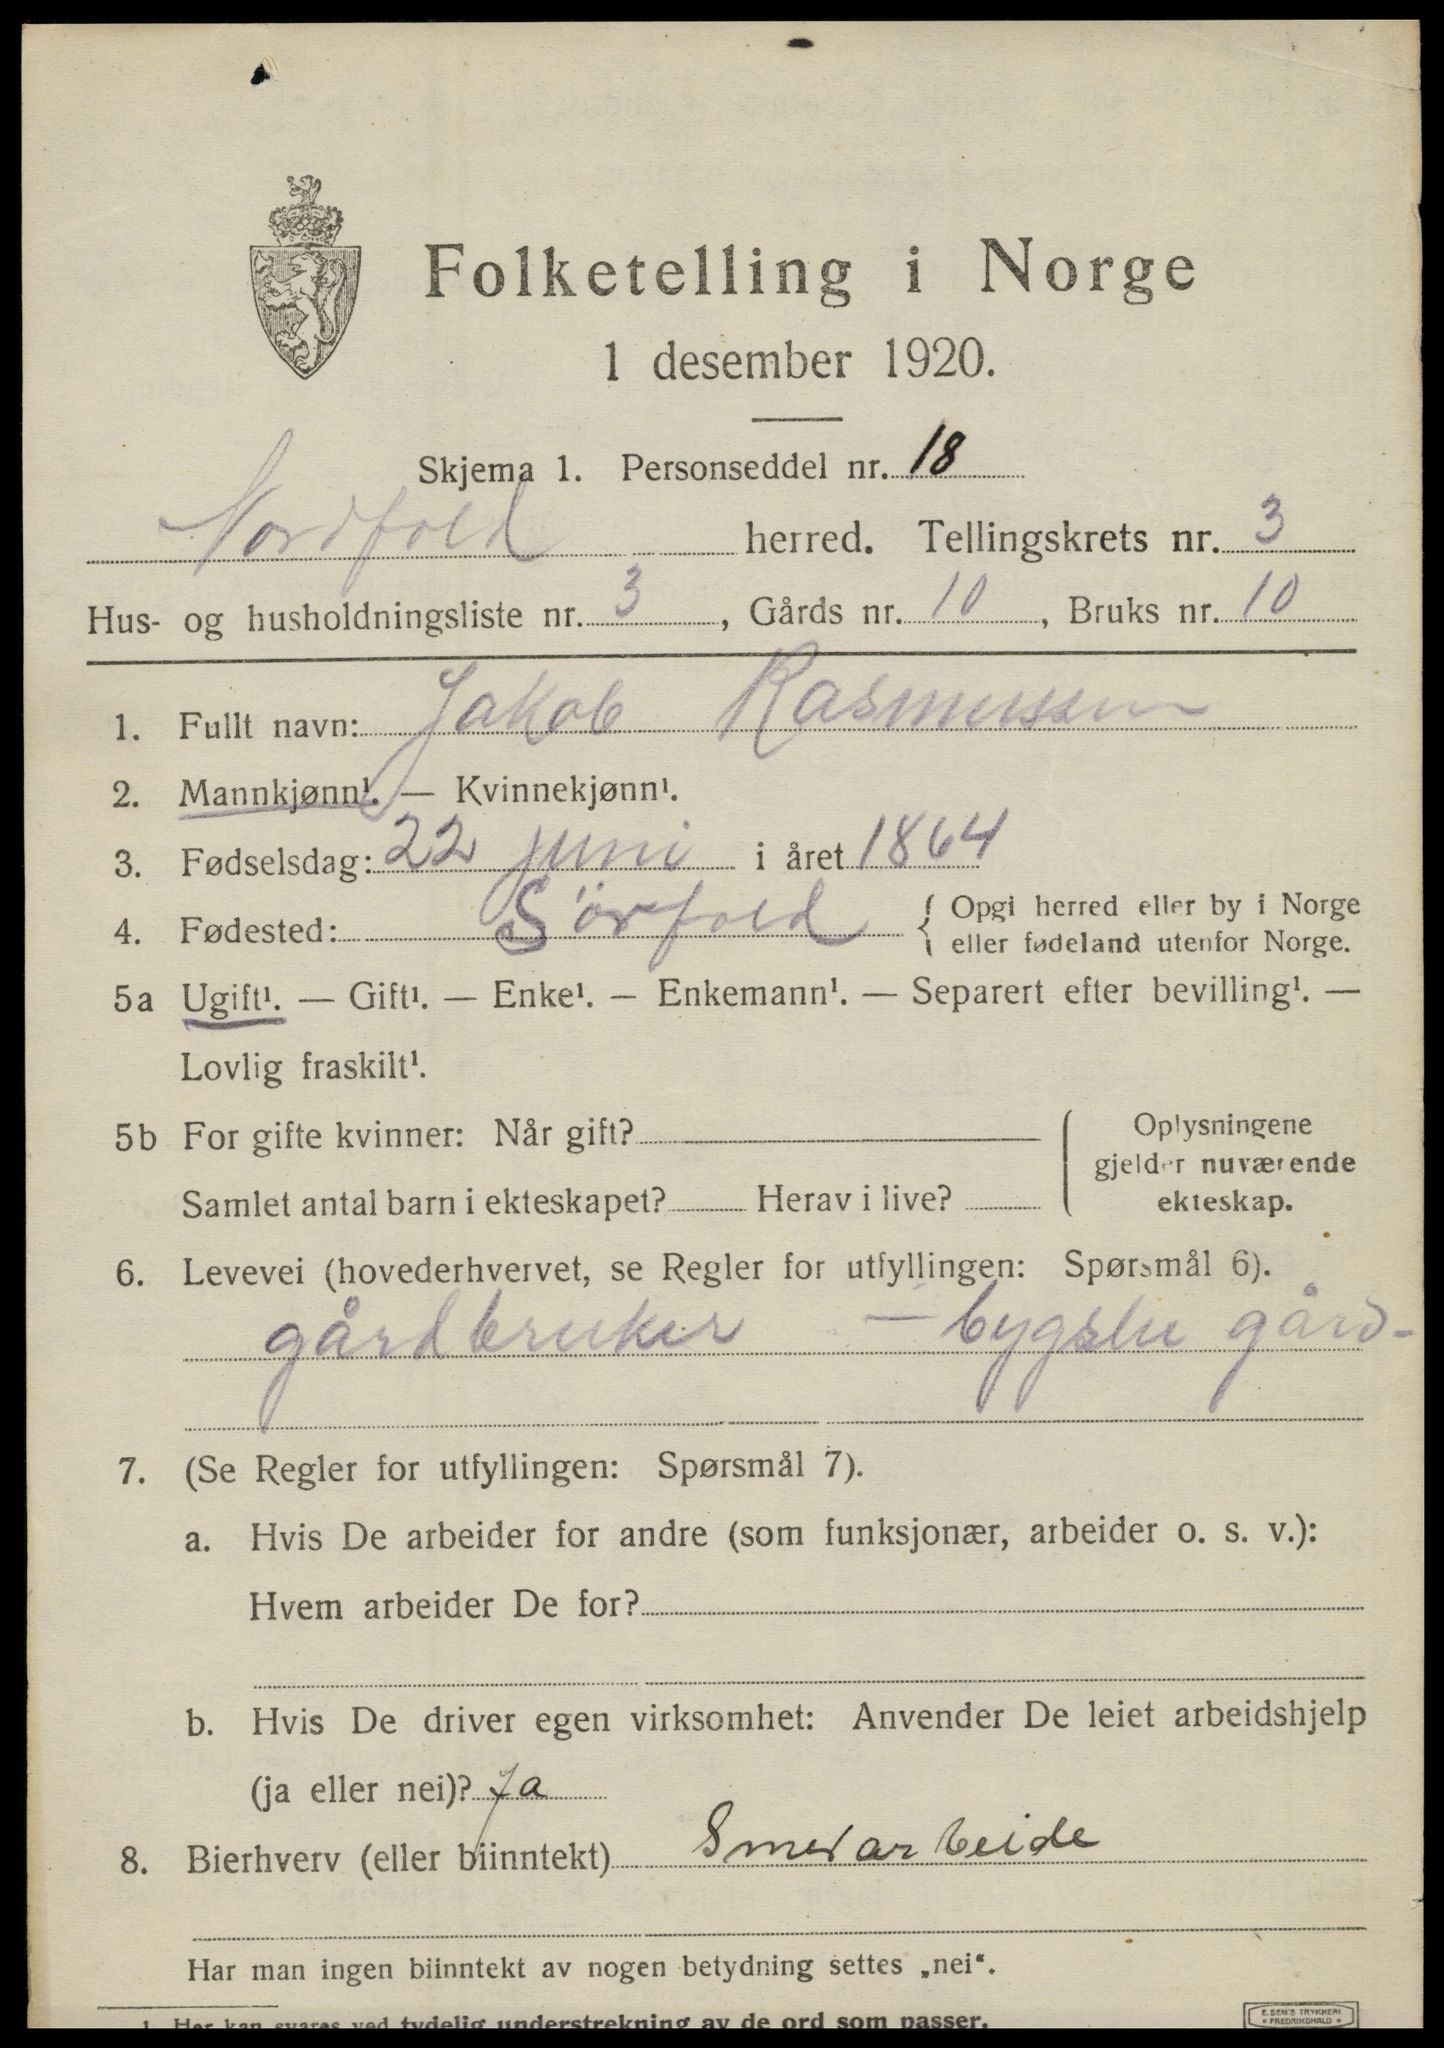 Folketelling i Norge
1 desember 1920.
Skjema 1. Personseddel nr. 18
Nordfold herred. Tellingskrets nr. 3
Hus- og husholdningsliste nr. 3, Gårds nr. 10, Bruks nr. 10
1. Fullt navn: Jakob Rasmussen
2. Mannkjønn¹. — Kvinnekjønn¹.
3. Fødselsdag: 22 juni i året 1864
4. Fødested: Sörfold { Opgi herred eller by i Norge
eller fødeland utenfor Norge.
5a Ugift¹. — Gift¹. — Enke¹. — Enkemann¹. — Separert efter bevilling¹. —
Lovlig fraskilt¹.
5b For gifte kvinner: Når gift?
Samlet antal barn i ekteskapet? Herav i live?
Oplysningene
gjelder nuværende
ekteskap.
6. Levevei (hovederhvervet, se Regler for utfyllingen: Spørsmål 6).
gårdbruker – bygslet gård-
7. (Se Regler for utfyllingen: Spørsmål 7).
a. Hvis De arbeider for andre (som funksjonær, arbeider o. s. v.):
Hvem arbeider De for?
b. Hvis De driver egen virksomhet: Anvender De leiet arbeidshjelp
(ja eller nei)? Ja
8. Bierhverv (eller biinntekt) Smedarbeide
Har man ingen biinntekt av nogen betydning settes „nei“.
1. Her kan svares ved tydelig understrekning av de ord som passer.
E. SEM'S TRYKKERI
FREDRIKSHALD